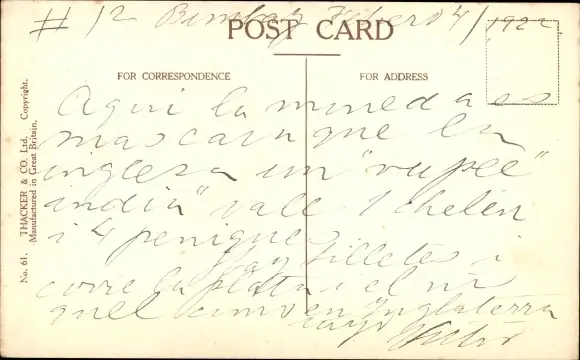 # 12 Bombay Febrero 4/1922
POST CARD
FOR CORRESPONDENCE
FOR ADDRESS
No. 61. THACKER & CO. Ltd. Copyright.
Manufactured in Great Britain.
Aqui la moneda es
mas cara que la
inglesa un "rupee"
india" vale 1 chelin
i 4 peniques
Hay billetes i
corre la plata i el ni
quel como en Inglaterra